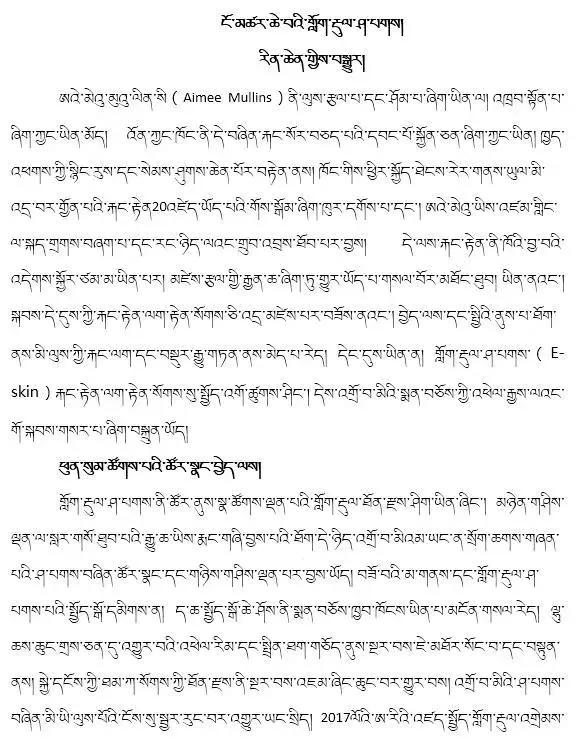 ངོ་མཚར་ཆེ་བའི་གློག་རྡུལ་ཤ་པགས།
རིན་ཆེན་གྱིས་བསྒྱུར།
ཨའེ་མེའུ་མུའུ་ལིན་སི ( Aimee Mullins ) ནི་ལུས་རྩལ་པ་དང་ཤོམ་པ་ཞིག་ཡིན་ལ། འཁྲབ་སྟོན་པ་
ཞིག་ཀྱང་ཡིན་མོད། འོན་ཀྱང་ཁོང་ནི་དེ་བཞིན་རྐང་སོར་བཅད་པའི་དབང་པོ་སྐྱོན་ཅན་ཞིག་ཀྱང་ཡིན། ཁྱད་
འཕགས་ཀྱི་སྙིང་རུས་དང་སེམས་ཤུགས་ཆེན་པོར་བརྟེན་ནས། ཁོང་གིས་ཕྱིར་སྐྱོད་ཐེངས་རེར་གནས་ཡུལ་མི་
འདྲ་བར་གྱོན་པའི་རྐང་རྟེན20འཛེད་ཡོད་པའི་གོས་སྒོམ་ཞིག་ཁུར་དགོས་པ་དང་། ཨའེ་མེའུ་ཡིས་འཛམ་གླིང་
ལ་སྐད་གྲགས་བཞག་པ་དང་རང་ཉིད་ལའང་གྲུབ་འབྲས་ཐོབ་པར་བྱས། དེ་ལས་རྐང་རྟེན་ནི་ཁོའི་བྱ་བའི་
འདེགས་སྐྱོར་ཙམ་མ་ཡིན་པར། མཛེས་རྩལ་གྱི་རྒྱན་ཆ་ཞིག་ཏུ་གྱུར་ཡོད་པ་གསལ་བོར་མཐོང་ཐུབ། ཡིན་ནའང་།
སྐབས་དེ་དུས་ཀྱི་རྐང་རྟེན་ལག་རྟེན་སོགས་ཅི་འདྲ་མཛེས་པར་བཟོས་ནའང་། བྱེད་ལས་དང་སྤྱིའི་ནུས་པ་ཐོག་
ནས་མི་ལུས་ཀྱི་རྐང་ལག་དང་བསྡུར་རྒྱུ་གཏན་ནས་མེད་པ་རེད། དེང་དུས་ཡིན་ན། གློག་རྡུལ་ཤ་པགས་ ( E-
skin ) རྐང་རྟེན་ལག་རྟེན་སོགས་སུ་སྤྱོད་འགོ་ཚུགས་ཤིང་། དེས་འགྲོ་བ་མིའི་སྨན་བཅོས་ཀྱི་འཕེལ་རྒྱས་ལའང་
གོ་སྐབས་གསར་པ་ཞིག་བསྐྲུན་ཡོད།
ཕུན་སུམ་ཚོགས་པའི་ཚོར་སྣང་བྱེད་ལས།
གློག་རྡུལ་ཤ་པགས་ནི་ཚོར་ནུས་སྣ་ཚོགས་ལྡན་པའི་གློག་རྡུལ་ཐོན་རྫས་ཤིག་ཡིན་ཞིང་། མཉེན་གཤིས་
ལྡན་ལ་སླར་གསོ་ཐུབ་པའི་རྒྱུ་ཆ་ཡིས་རྨང་གཞི་བྱས་པའི་ཐོག་དེ་ཉིད་འགྲོ་བ་མིའམ་ཡང་ན་སྲོག་ཆགས་གཞན་
པའི་ཤ་པགས་བཞིན་ཚོར་སྣང་དང་གཉིས་གཤིས་ལྡན་པར་བྱས་ཡོད། བཟོ་བའི་མ་གནས་དང་གློག་རྡུལ་ཤ་
པགས་པའི་སྤྱོད་སྒོ་དམིགས་ན། ད་ཆ་སྤྱོད་སྒོ་ཆེ་ཤོས་ནི་སྨན་བཅོས་ཁྱབ་ཁོངས་ཡིན་པ་མངོན་གསལ་རེད། ལྷུ་
ཆས་ཆུང་གྲས་ཅན་དུ་འགྱུར་བའི་འཕེལ་རིམ་དང་སྤྲིན་ཐག་གཅོད་ནུས་སྔར་བས་ཇེ་མཐོར་སོང་བ་དང་བསྟུན་
ནས། སྐྱེ་དངོས་ཀྱི་ཐམ་ཀ་སོགས་ཀྱི་ཐོན་རྫས་ནི་སྔར་བས་འཇམ་ཞིང་ཆུང་བར་གྱུར་བས། འགྲོ་བ་མིའི་ཤ་པགས་
བཞིན་མི་ཡི་ལུས་པོའི་ངོས་སུ་སྦྱར་རུང་བར་འགྱུར་ཡང་སྲིད། 2017ལོའི་ཨ་རིའི་འཛད་སྤྱོད་གློག་རྡུལ་འགྲེམས་